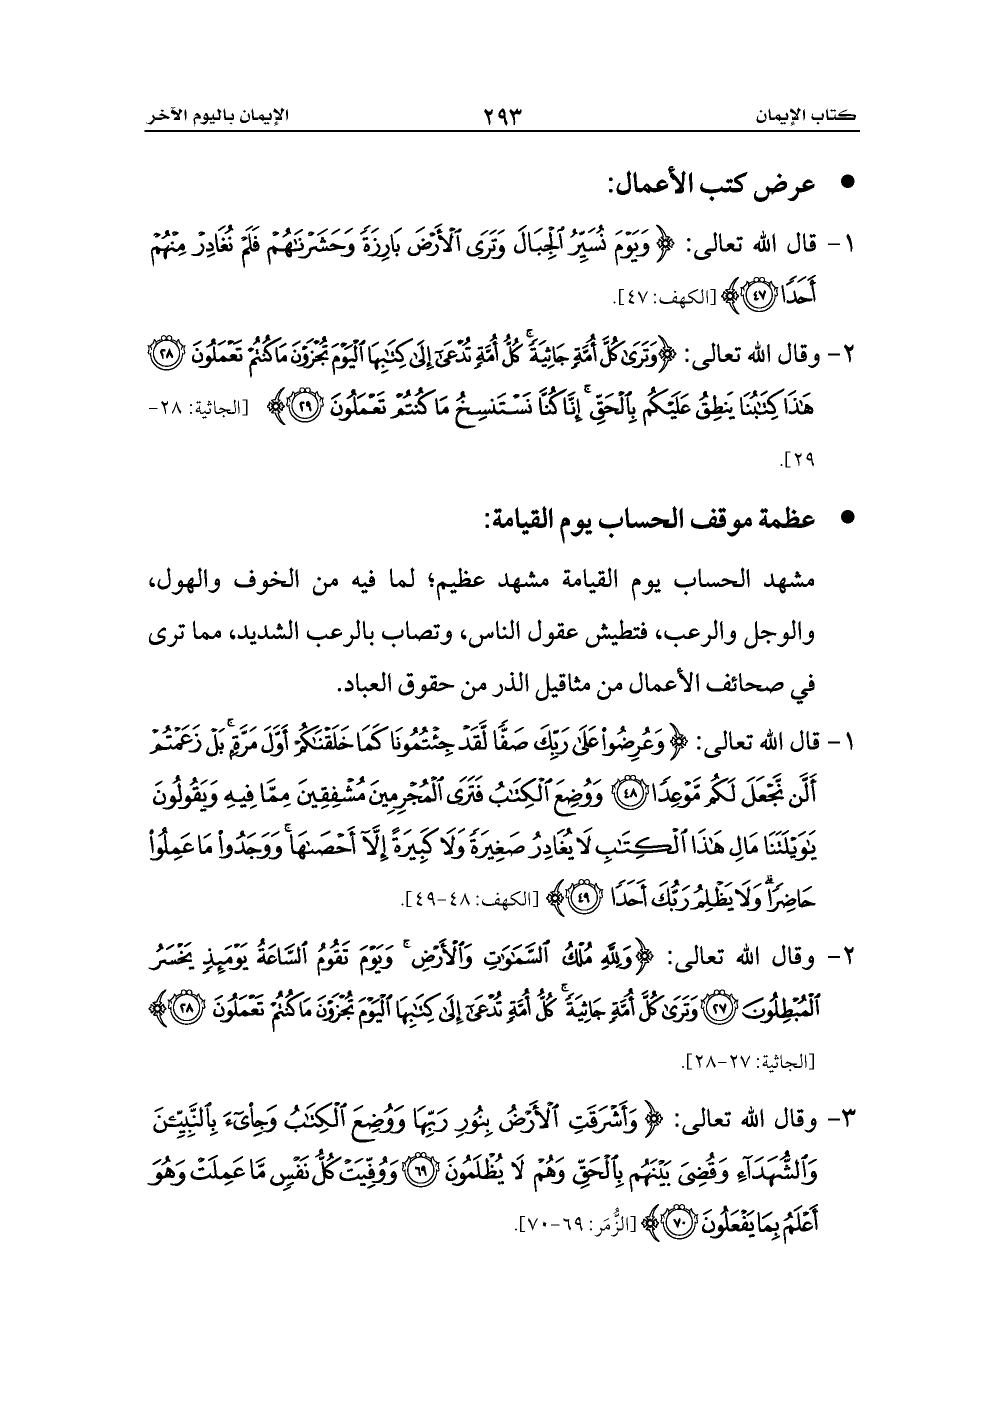 كتاب الإيمان ٢٩٣ الإيمان باليوم الآخر
● عرض كتب الأعمال:
١- قال الله تعالى: ﴿ وَيَوْمَ نُسَيِّرُ ٱلْجِبَالَ وَتَرَى ٱلْأَرْضَ بَارِزَةً وَحَشَرْنَٰهُمْ فَلَمْ نُغَادِرْ مِنْهُمْ
أَحَدًا ٤٧﴾ [الكهف: ٤٧].
٢- وقال الله تعالى: ﴿وَتَرَىٰ كُلَّ أُمَّةٍ جَاثِيَةً ۚ كُلُّ أُمَّةٍ تُدْعَىٰٓ إِلَىٰ كِتَٰبِهَا ٱلْيَوْمَ تُجْزَوْنَ مَا كُنتُمْ تَعْمَلُونَ ٢٨
هَٰذَا كِتَٰبُنَا يَنطِقُ عَلَيْكُم بِٱلْحَقِّ ۚ إِنَّا كُنَّا نَسْتَنسِخُ مَا كُنتُمْ تَعْمَلُونَ ٢٩﴾ [الجاثية: ٢٨-
٢٩].
● عظمة موقف الحساب يوم القيامة:
مشهد الحساب يوم القيامة مشهد عظيم؛ لما فيه من الخوف والهول،
والوجل والرعب، فتطيش عقول الناس، وتصاب بالرعب الشديد، مما ترى
في صحائف الأعمال من مثاقيل الذر من حقوق العباد.
١- قال الله تعالى: ﴿ وَعُرِضُوا۟ عَلَىٰ رَبِّكَ صَفًّا لَّقَدْ جِئْتُمُونَا كَمَا خَلَقْنَٰكُمْ أَوَّلَ مَرَّةٍۭ ۚ بَلْ زَعَمْتُمْ
أَلَّن نَّجْعَلَ لَكُم مَّوْعِدًا ٤٨ وَوُضِعَ ٱلْكِتَٰبُ فَتَرَى ٱلْمُجْرِمِينَ مُشْفِقِينَ مِمَّا فِيهِ وَيَقُولُونَ
يَٰوَيْلَتَنَا مَالِ هَٰذَا ٱلْكِتَٰبِ لَا يُغَادِرُ صَغِيرَةً وَلَا كَبِيرَةً إِلَّآ أَحْصَىٰهَا ۚ وَوَجَدُوا۟ مَا عَمِلُوا۟
حَاضِرًا ۗ وَلَا يَظْلِمُ رَبُّكَ أَحَدًا ٤٩﴾ [الكهف: ٤٨-٤٩].
٢- وقال الله تعالى: ﴿وَلِلَّهِ مُلْكُ ٱلسَّمَٰوَٰتِ وَٱلْأَرْضِ ۚ وَيَوْمَ تَقُومُ ٱلسَّاعَةُ يَوْمَئِذٍ يَخْسَرُ
ٱلْمُبْطِلُونَ ٢٧ وَتَرَىٰ كُلَّ أُمَّةٍ جَاثِيَةً ۚ كُلُّ أُمَّةٍ تُدْعَىٰٓ إِلَىٰ كِتَٰبِهَا ٱلْيَوْمَ تُجْزَوْنَ مَا كُنتُمْ تَعْمَلُونَ ٢٨﴾
[الجاثية: ٢٧-٢٨].
٣- وقال الله تعالى: ﴿ وَأَشْرَقَتِ ٱلْأَرْضُ بِنُورِ رَبِّهَا وَوُضِعَ ٱلْكِتَٰبُ وَجِا۟ىٓءَ بِٱلنَّبِيِّۦنَ
وَٱلشُّهَدَآءِ وَقُضِىَ بَيْنَهُم بِٱلْحَقِّ وَهُمْ لَا يُظْلَمُونَ ٦٩ وَوُفِّيَتْ كُلُّ نَفْسٍ مَّا عَمِلَتْ وَهُوَ
أَعْلَمُ بِمَا يَفْعَلُونَ ٧٠﴾ [الزُّمَر: ٦٩-٧٠].